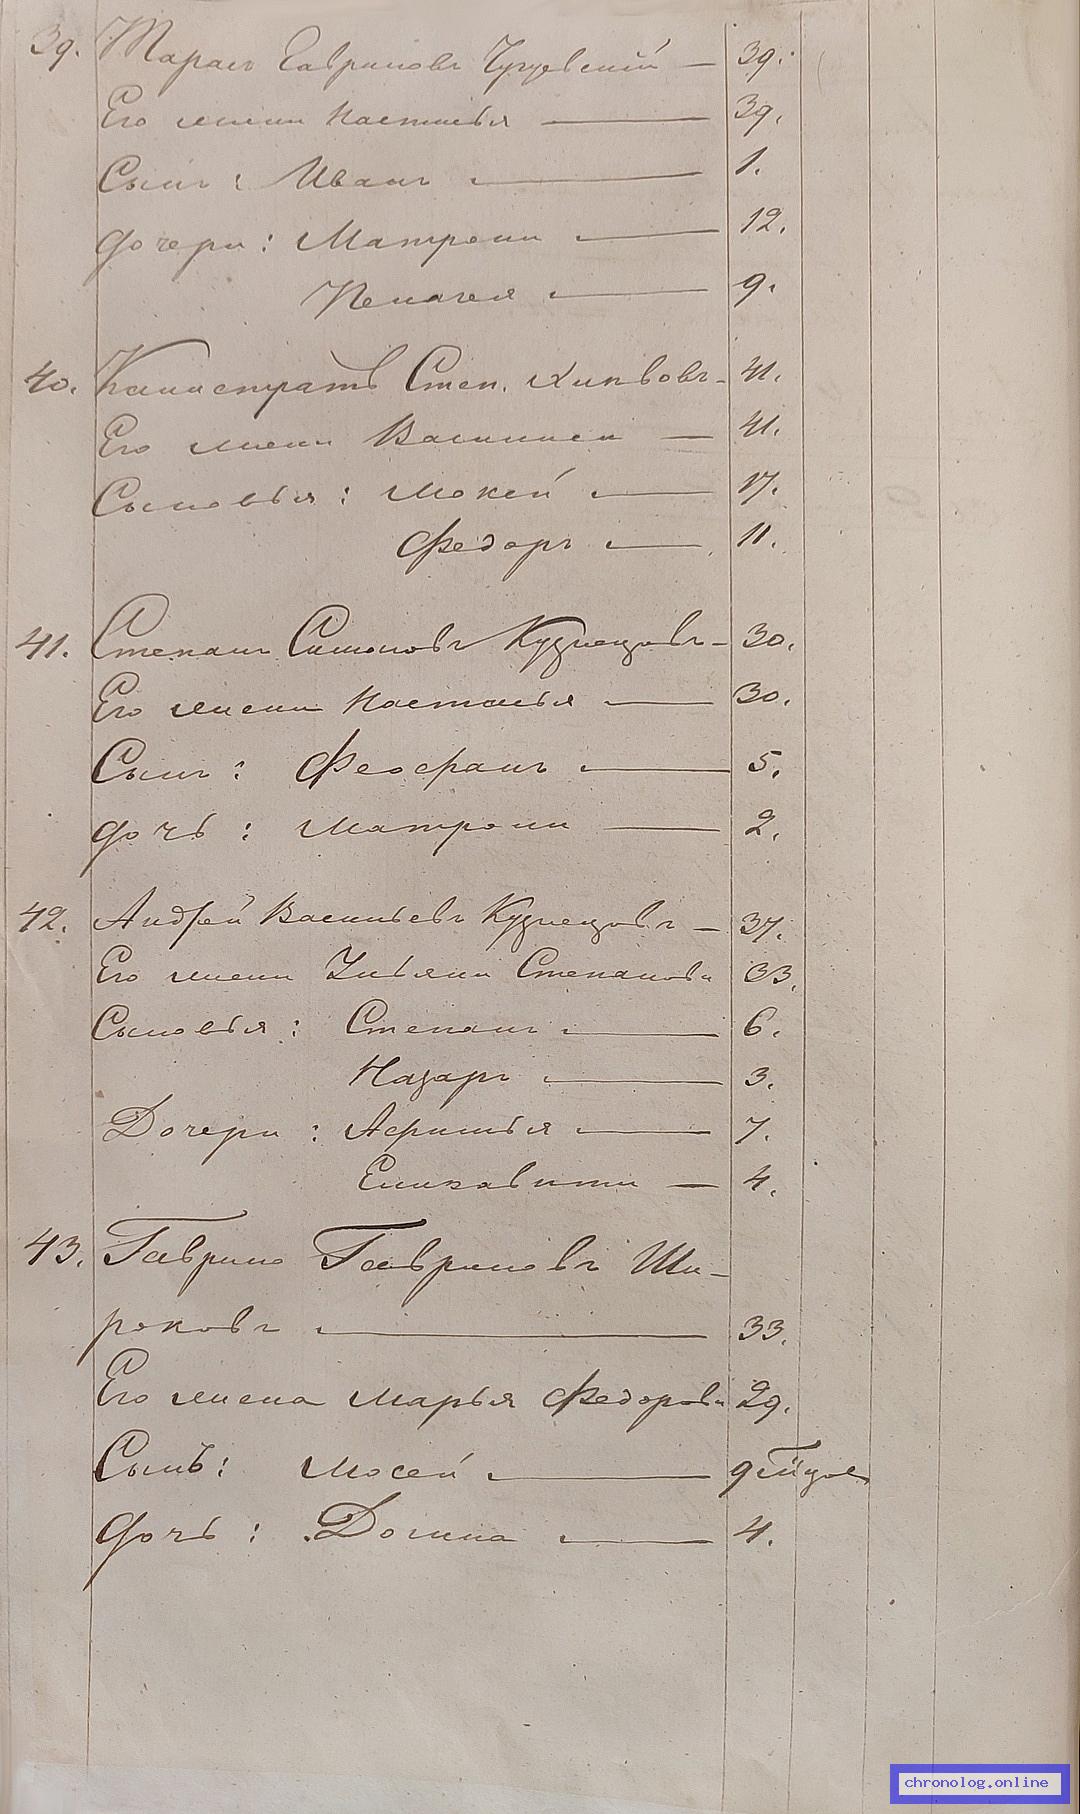 39. Тарасъ Гавриловъ Чугуевский — 39.
Его жена Настасья — 39.
Сынъ: Иванъ — 1.
Дочери: Матрона — 12.
Пелагея — 9.
40. Калистратъ Степ. — 41.
Его жена Василиса — 41.
Сыновья: Мокей — 17.
Федоръ — 11.
41. Степанъ Симоновъ Кузнецовъ — 30.
Его жена Настасья — 30.
Сынъ: Феофанъ — 5.
Дочь: Матрона — 2.
42. Андрей Васильевъ Кузнецовъ — 37.
Его жена Ульяна Степанова 33.
Сыновья: Степанъ — 6.
Назаръ — 3.
Дочери: Афимья — 7.
Елизавета — 4.
43. Гаврило Гавриловъ Ши-
роковъ — 33.
Его жена Марья Федорова 29.
Сынъ: Мосей —
Дочь: Домна — 4.
chronolog.online